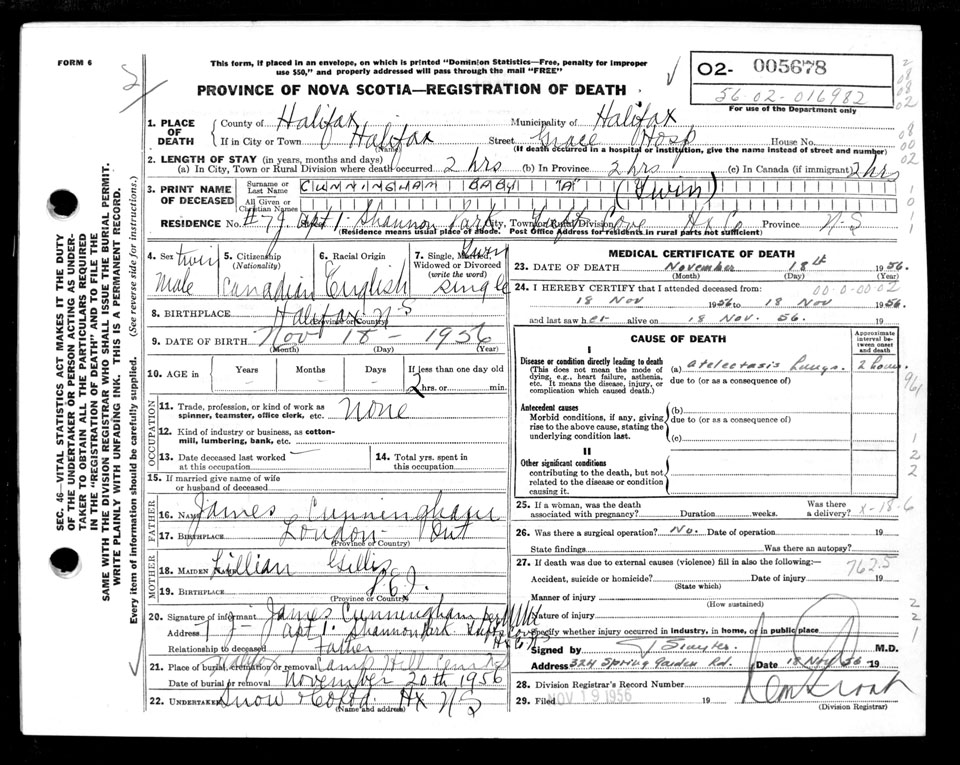 FORM 6
This form, if placed in an envelope, on which is printed "Dominion Statistics—Free, penalty for improper
use $50," and properly addressed will pass through the mail "FREE"
02- 005678
56-02-016982
For use of the Department only
PROVINCE OF NOVA SCOTIA—REGISTRATION OF DEATH
SEC. 46—VITAL STATISTICS ACT MAKES IT THE DUTY
OF THE UNDERTAKER OR PERSON ACTING AS UNDER-
TAKER TO OBTAIN ALL THE PARTICULARS REQUIRED
IN THE "REGISTRATION OF DEATH" AND TO FILE THE
SAME WITH THE DIVISION REGISTRAR WHO SHALL ISSUE THE BURIAL PERMIT.
WRITE PLAINLY WITH UNFADING INK. THIS IS A PERMANENT RECORD.
Every item of information should be carefully supplied. (See reverse side for instructions.)
1. PLACE OF DEATH County of Halifax Municipality of Halifax
If in City or Town Halifax (Name) Street Grace Hosp House No.
(If death occurred in a hospital or institution, give the name instead of street and number)
2. LENGTH OF STAY (in years, months and days)
(a) In City, Town or Rural Division where death occurred 2 hrs (b) In Province 2 hrs (c) In Canada (if immigrant) 2 hrs
3. PRINT NAME OF DECEASED Surname or Last Name CUNNINGHAM BABY "A" (Twin)
All Given or Christian Names
RESIDENCE No. #7J Apt 1. Shannon Park City, Town or Cove Hx Co Province N-S
(Residence means usual place of abode. Post Office Address for residents in rural parts not sufficient)
4. Sex twin Male
5. Citizenship (Nationality) Canadian
6. Racial Origin English
7. Single, Married, Widowed or Divorced (write the word) Single
8. BIRTHPLACE Halifax N-S (Province or Country)
9. DATE OF BIRTH Nov 18 - 1956
(Month) (Day) (Year)
10. AGE in Years Months Days If less than one day old
2 hrs. or min.
OCCUPATION
11. Trade, profession, or kind of work as spinner, teamster, office clerk, etc. None
12. Kind of industry or business, as cotton-mill, lumbering, bank, etc.
13. Date deceased last worked at this occupation
14. Total yrs. spent in this occupation
15. If married give name of wife or husband of deceased
FATHER
16. NAME James Cunningham
17. BIRTHPLACE London Ont
(Province or Country)
MOTHER
18. MAIDEN NAME Lillian Gillis
19. BIRTHPLACE P.E.I.
(Province or Country)
20. Signature of informant James Cunningham per
Address 7 J- Apt 1. Shannon Park Cove
Relationship to deceased Father Hx Co N S
21. Place of burial, cremation or removal Camp Hill Cemetery
Date of burial or removal November 20th 1956
22. UNDERTAKER Snow & Co Ltd. Hx N S
(Name and address)
MEDICAL CERTIFICATE OF DEATH
23. DATE OF DEATH November 18th 1956.
(Month) (Day) (Year)
24. I HEREBY CERTIFY that I attended deceased from: 00-0-00-02
18 Nov 1956 to 18 Nov 1956.
and last saw her alive on 18 Nov. 56. 19
CAUSE OF DEATH
Approximate interval between onset and death
I
Disease or condition directly leading to death
(This does not mean the mode of dying, e.g., heart failure, asthenia, etc. It means the disease, injury, or complication which caused death.)
(a) atelectasis Lungs. 2 hours.
due to (or as a consequence of)
Antecedent causes
Morbid conditions, if any, giving rise to the above cause, stating the underlying condition last.
(b)
due to (or as a consequence of)
(c)
II
Other significant conditions
contributing to the death, but not related to the disease or condition causing it.
25. If a woman, was the death associated with pregnancy? Duration weeks. Was there a delivery? X-18-6
26. Was there a surgical operation? No. Date of operation 19
State findings Was there an autopsy?
27. If death was due to external causes (violence) fill in also the following:— 762.5
Accident, suicide or homicide? Date of injury 19
(State which)
Manner of injury
(How sustained)
Nature of injury
Specify whether injury occurred in industry, in home, or in public place
Signed by M.D.
Address 324 Spring Garden Rd. Date 18 Nov 56 19
28. Division Registrar's Record Number
29. Filed NOV 19 1956 19
(Division Registrar)